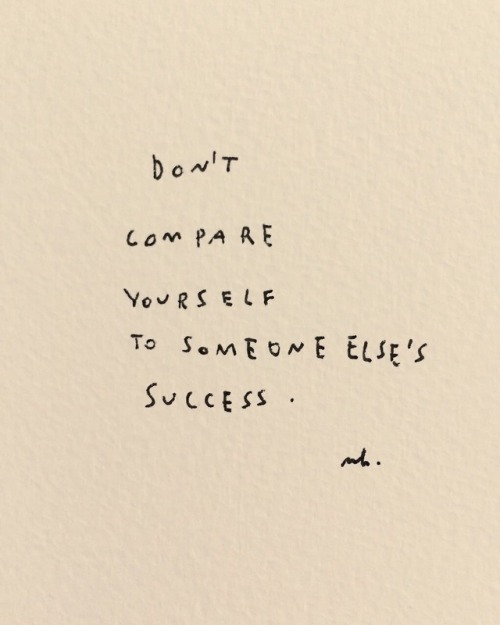 DON'T
COMPARE
YOURSELF
TO SOMEONE ELSE'S
SUCCESS.
mh.